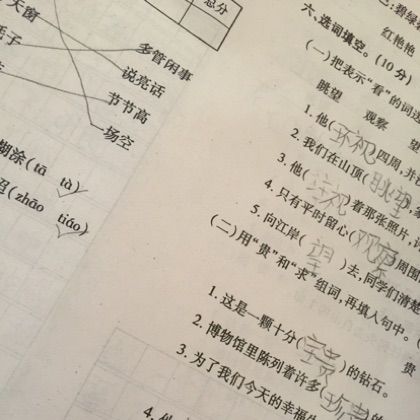 总分
天窗
毛子
多管闲事
说亮话
节节高
场空
糊涂(tā tà)
(zhāo tiáo)
碧绿
红艳艳
六、选词填空。(10分)
(一)把表示“看”的词
眺望 观察 望
1. 他(环视)四周,并
2. 我们在山顶(眺望)
3. 他()着那张照片,
4. 只有平时留心(观察)周围
5. 向江岸(望)去,同学们清楚
(二)用“贵”和“求”组词,再填入句中。(
贵
1. 这是一颗十分(宝贵)的钻石。
2. 博物馆里陈列着许多()的
3. 为了我们今天的幸福
4.